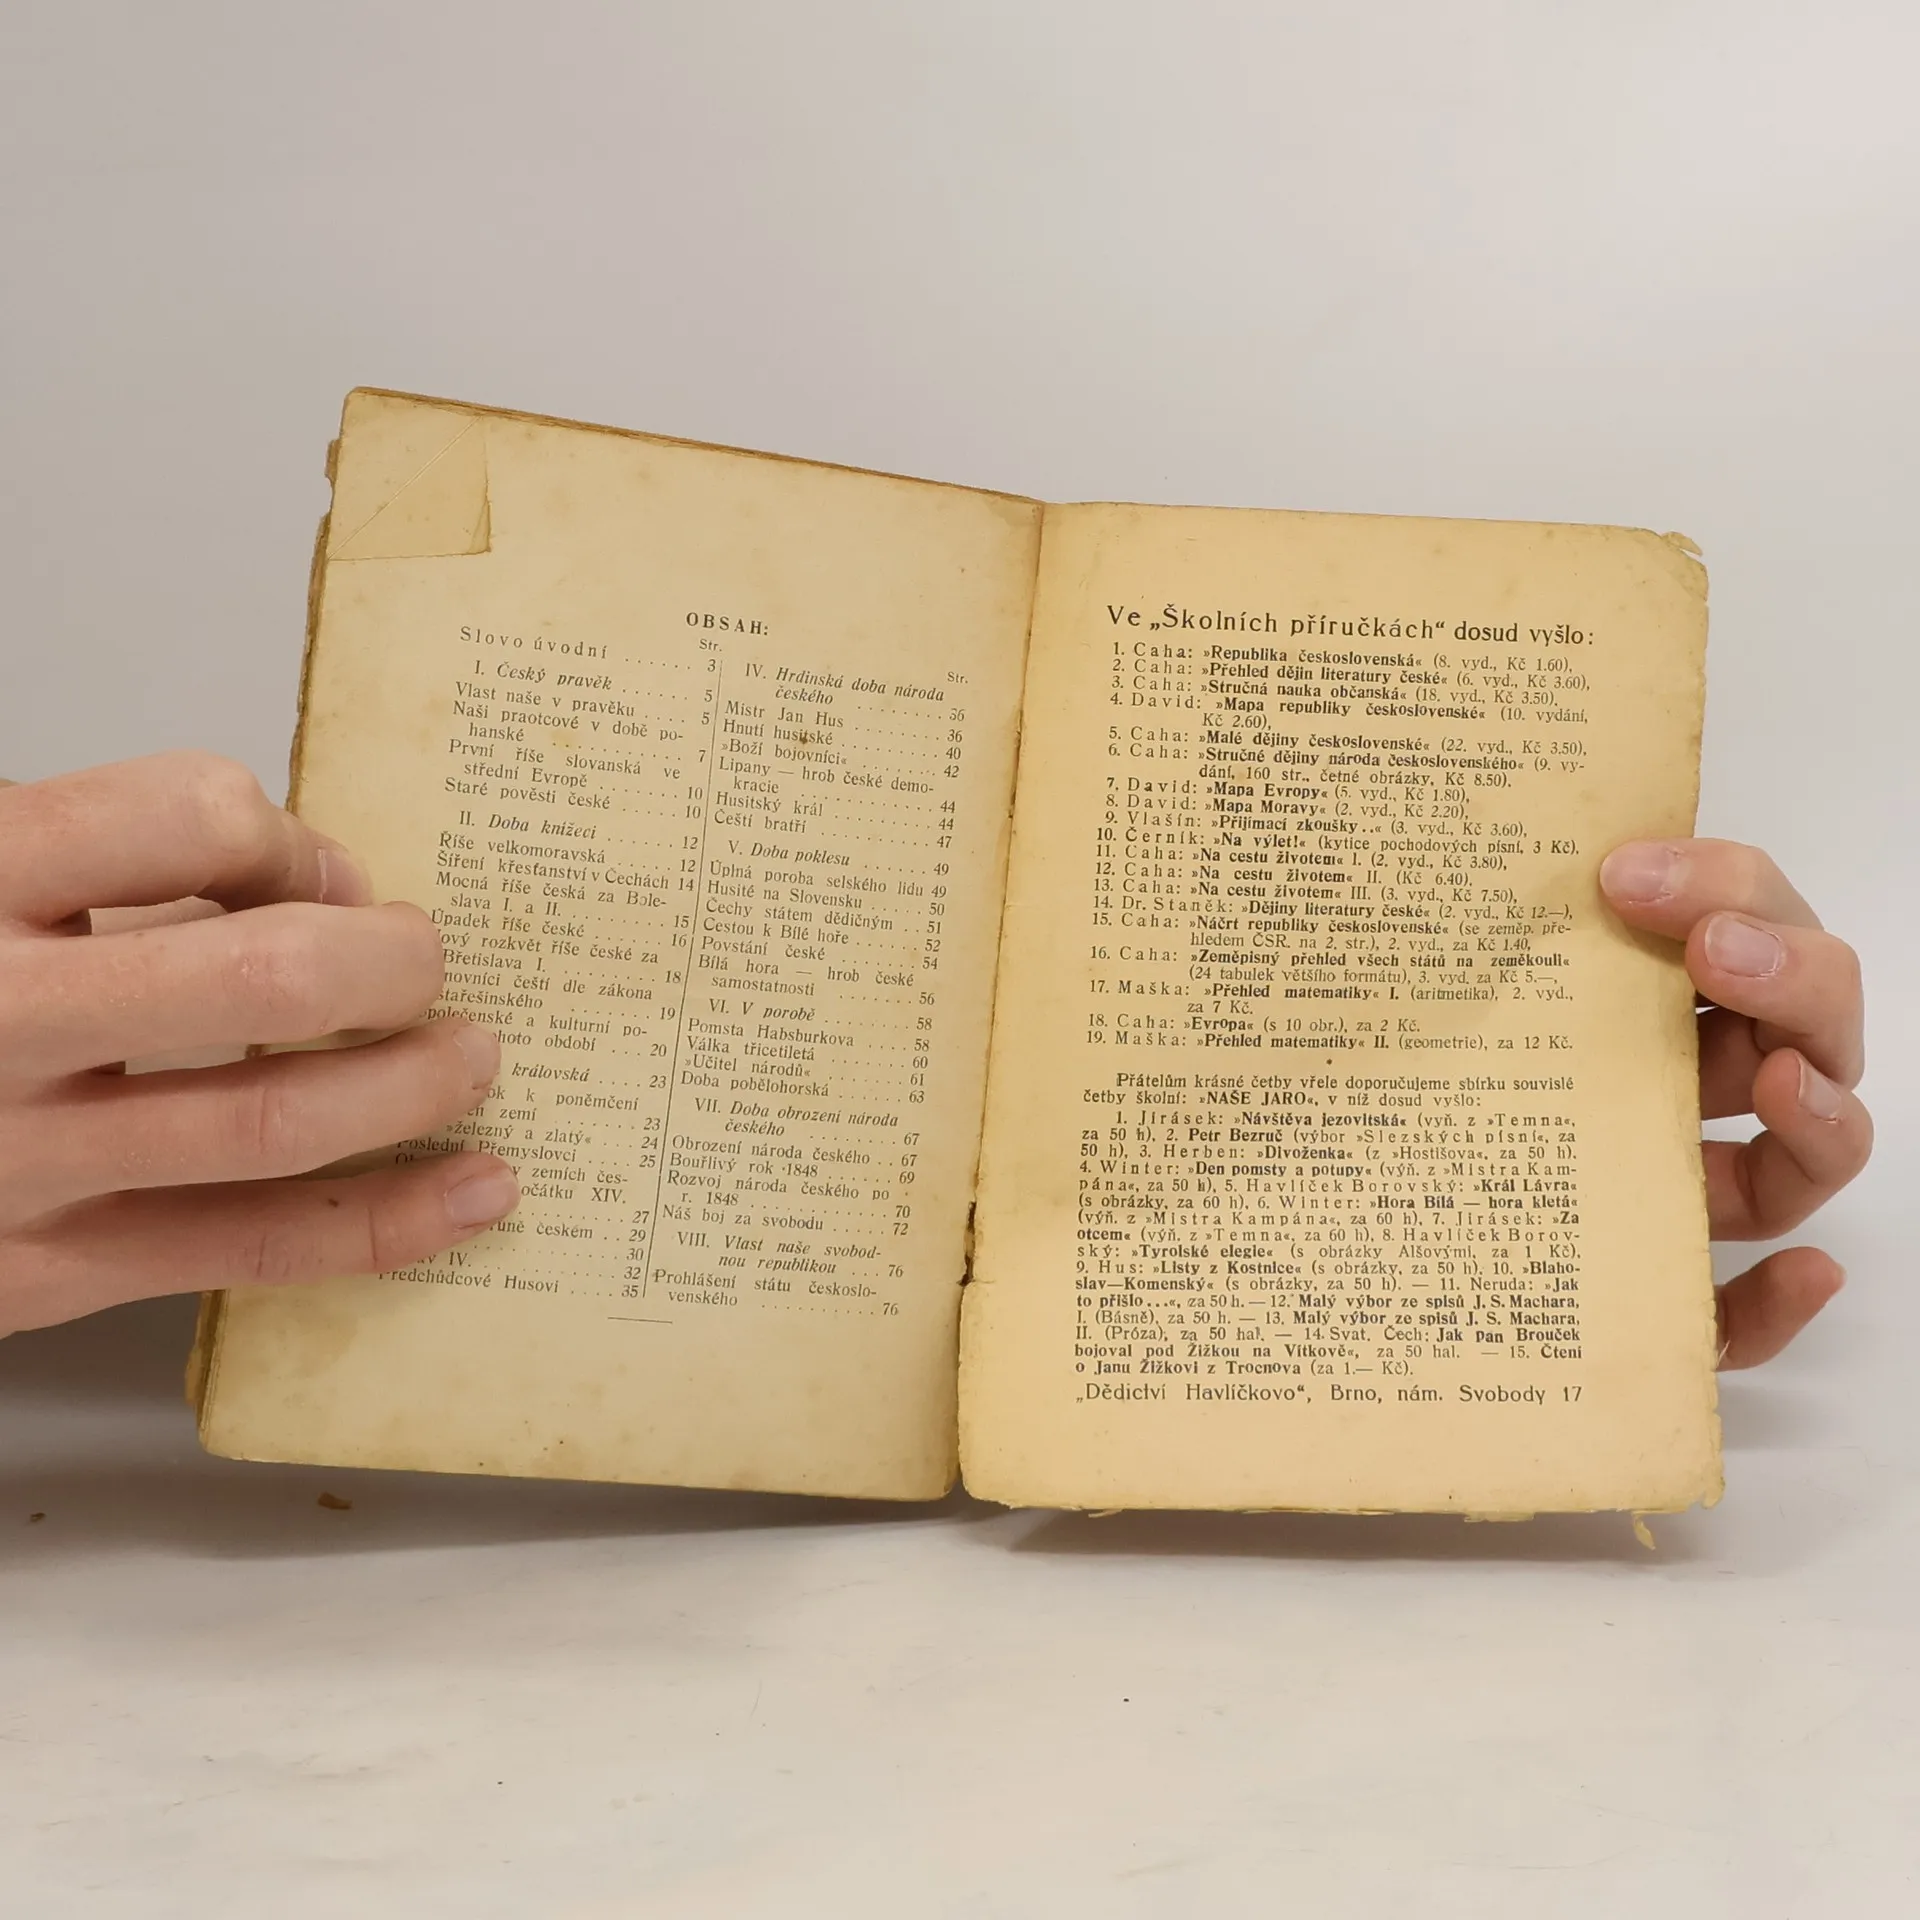 OBSAH:
Str.
Slovo úvodní . . . . . . 3
I. Český pravěk . . . . . . 5
Vlast naše v pravěku . . . . 5
Naši praotcové v době po-
hanské . . . . . . . . . 7
První říše slovanská ve
střední Evropě . . . . . . . 10
Staré pověsti české . . . . . 10
II. Doba knížecí . . . . . . 12
Říše velkomoravská . . . . . 12
Šíření křesťanství v Čechách 14
Mocná říše česká za Bole-
slava I. a II. . . . . . . . . 15
Úpadek říše české . . . . . . 16
ový rozkvět říše české za
Břetislava I. . . . . . . . . 18
novníci čeští dle zákona
stařešinského . . . . . . . 19
společenské a kulturní po-
hoto období . . . 20
královská . . . . 23
ok k poněmčení
zemí . . . . . . . 23
»železný a zlatý« . . . 24
Poslední Přemyslovci . . . . 25
v zemích čes-
očátku XIV.
. . . . . . . . . 27
runě českém . . 29
. . . . . . . . 30
av IV. . . . . . . . . . . 32
Předchůdcové Husovi . . . . 35
Str.
IV. Hrdinská doba národa
českého . . . . . . . . 36
Mistr Jan Hus . . . . . . . . 36
Hnutí husitské . . . . . . . . 40
»Boží bojovníci« . . . . . . . 42
Lipany — hrob české demo-
kracie . . . . . . . . . . . 44
Husitský král . . . . . . . . 44
Čeští bratří . . . . . . . . . 47
V. Doba poklesu . . . . . . 49
Úplná poroba selského lidu 49
Husité na Slovensku . . . . . 50
Čechy státem dědičným . . 51
Cestou k Bílé hoře . . . . . . 52
Povstání české . . . . . . . 54
Bílá hora — hrob české
samostatnosti . . . . . . . 56
VI. V porobě . . . . . . . . 58
Pomsta Habsburkova . . . . 58
Válka třicetiletá . . . . . . 60
»Učitel národů« . . . . . . . 61
Doba pobělohorská . . . . . . 63
VII. Doba obrození národa
českého . . . . . . . . 67
Obrození národa českého . . 67
Bouřlivý rok 1848 . . . . . . 69
Rozvoj národa českého po
r. 1848 . . . . . . . . . . 70
Náš boj za svobodu . . . . . 72
VIII. Vlast naše svobod-
nou republikou . . . 76
Prohlášení státu českoslo-
venského . . . . . . . . . . 76
Ve „Školních příručkách“ dosud vyšlo:
1. Caha: »Republika československá« (8. vyd., Kč 1.60),
2. Caha: »Přehled dějin literatury české« (6. vyd., Kč 3.60),
3. Caha: »Stručná nauka občanská« (18. vyd., Kč 3.50),
4. David: »Mapa republiky československé« (10. vydání,
Kč 2.60),
5. Caha: »Malé dějiny československé« (22. vyd., Kč 3.50),
6. Caha: »Stručné dějiny národa československého« (9. vy-
dání, 160 str., četné obrázky, Kč 8.50).
7. David: »Mapa Evropy« (5. vyd., Kč 1.80),
8. David: »Mapa Moravy« (2. vyd., Kč 2.20),
9. Vlašín: »Přijímací zkoušky..« (3. vyd., Kč 3.60),
10. Černík: »Na výlet!« (kytice pochodových písní, 3 Kč).
11. Caha: »Na cestu životem« I. (2. vyd., Kč 3.80),
12. Caha: »Na cestu životem« II. (Kč 6.40),
13. Caha: »Na cestu životem« III. (3. vyd., Kč 7.50),
14. Dr. Staněk: »Dějiny literatury české« (2. vyd., Kč 12.—),
15. Caha: »Náčrt republiky československé« (se zeměp. pře-
hledem ČSR. na 2. str.), 2. vyd., za Kč 1.40,
16. Caha: »Zeměpisný přehled všech států na zeměkouli«
(24 tabulek většího formátu), 3. vyd. za Kč 5.—,
17. Maška: »Přehled matematiky« I. (aritmetika), 2. vyd.,
za 7 Kč.
18. Caha: »Evropa« (s 10 obr.), za 2 Kč.
19. Maška: »Přehled matematiky« II. (geometrie), za 12 Kč.
*
Přátelům krásné četby vřele doporučujeme sbírku souvislé
četby školní: »NAŠE JARO«, v níž dosud vyšlo:
1. Jirásek: »Návštěva jezovitská« (vyň. z »Temna«,
za 50 h), 2. Petr Bezruč (výbor »Slezských písní«, za
50 h), 3. Herben: »Divoženka« (z »Hostišova«, za 50 h).
4. Winter: »Den pomsty a potupy« (výň. z »Mistra Kam-
pána«, za 50 h), 5. Havlíček Borovský: »Král Lávra«
(s obrázky, za 60 h), 6. Winter: »Hora Bílá — hora kletá«
(výň. z »Mistra Kampána«, za 60 h), 7. Jirásek: »Za
otcem« (výň. z »Temna«, za 60 h), 8. Havlíček Borov-
ský: »Tyrolské elegie« (s obrázky Alšovými, za 1 Kč),
9. Hus: »Listy z Kostnice« (s obrázky, za 50 h). 10. »Blaho-
slav—Komenský« (s obrázky, za 50 h). — 11. Neruda: »Jak
to přišlo...«, za 50 h. — 12. Malý výbor ze spisů J. S. Machara,
I. (Básně), za 50 h. — 13. Malý výbor ze spisů J. S. Machara,
II. (Próza), za 50 hal. — 14. Svat. Čech: Jak pan Brouček
bojoval pod Žižkou na Vítkově«, za 50 hal. — 15. Čtení
o Janu Žižkovi z Trocnova (za 1.— Kč).
„Dědictví Havlíčkovo“, Brno, nám. Svobody 17